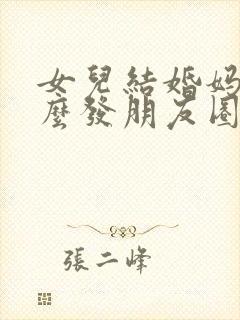 女兒結婚媽
麼發朋友圈
張二峰